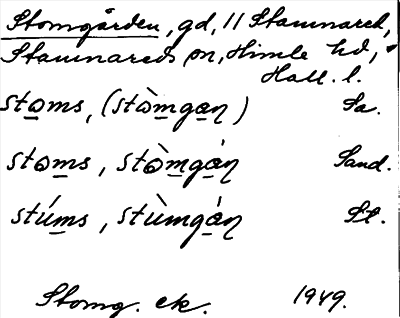 Stomgården, gd, 11 Stamnared,
Stamnareds sn, Himle hd,
Hall. l.
stoms, (stòmgaŋ) Sa.
stoms, stòmgáŋ Sand.
stúms, stùmgáŋ St.
Stomg. ek. 1949.